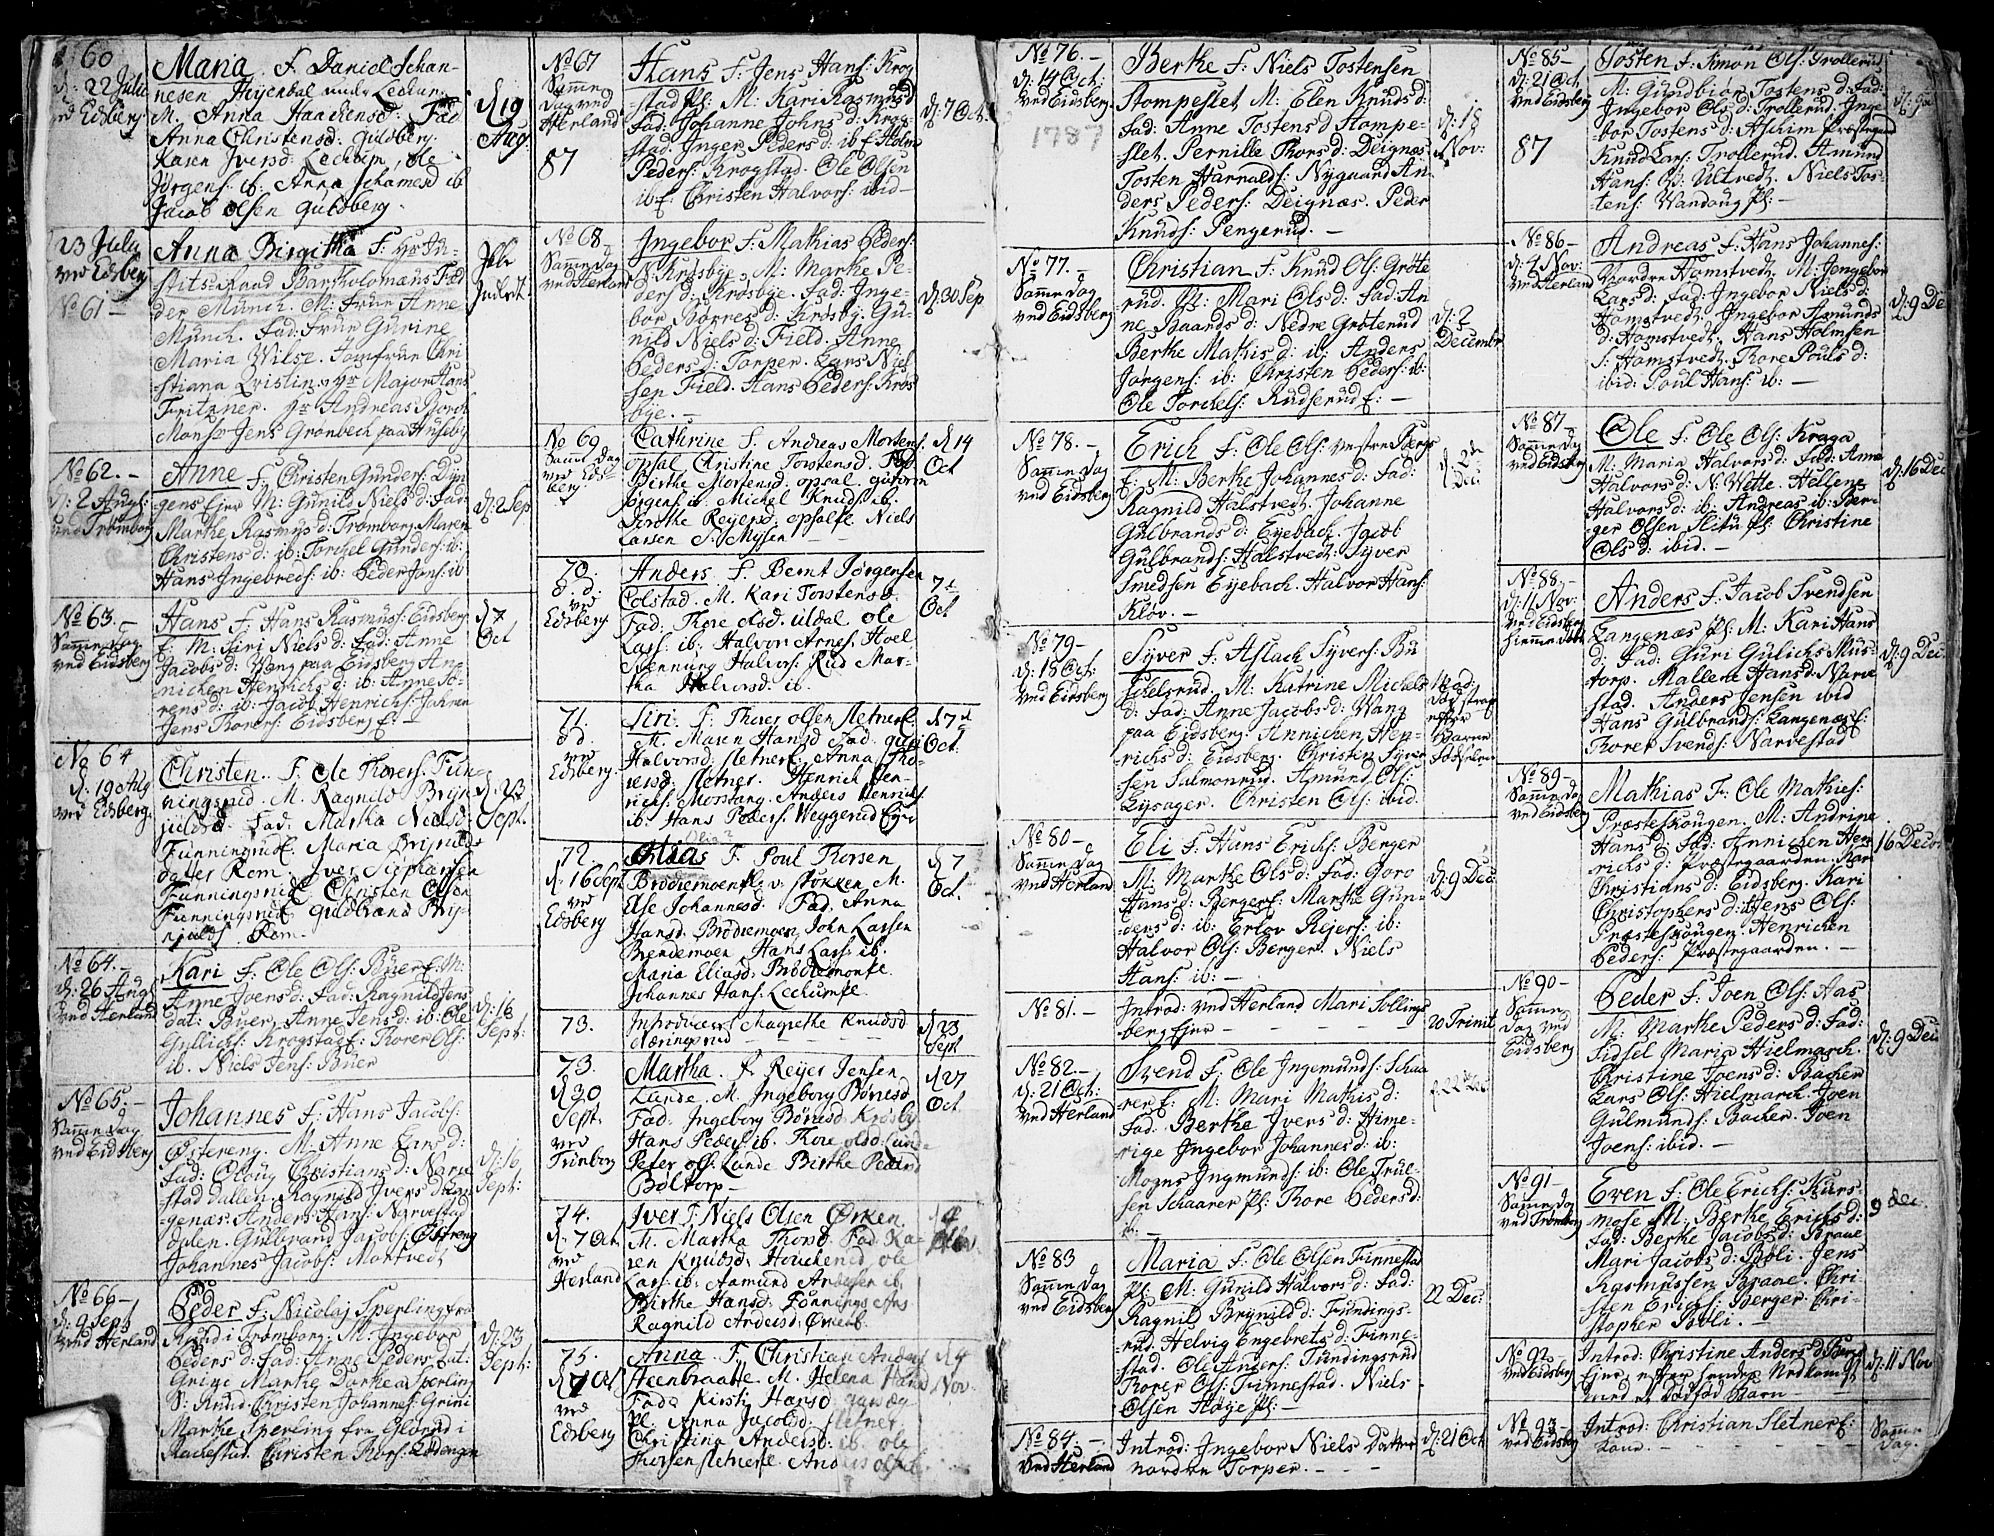 60
d: 22 Julii
ved Edsberg
Maria. F. Daniel Johan-
nesen Heyenbal under Leckum.
M. Anna Haachensd: Fad
Anna Christensd: Guldberg.
Karen Iversd: Leckum, Ole
Jørgens: ib: Anna Johannesd ib
Jacob Olsen Guldberg.
d 19
Aug:
23 July
ved Edsberg
No 61 —
Anna Birgitha F: Hr Ju-
stits:Raad Bartholomæus Fæd
der Munch. M: Frue Anne
Munch. Fad: Frue Gurine
Maria Wilse. Jomfrue Chri
stiana Qvistin. Hr Major Hans
Fritzner. Hr Andreas Borch
Monsr Jens Grønbech paa Huseby
No 62. —
d: 2 Augs:
ved Trømborg
Anne F: Christen Gunders: Dÿn
gens Ejer M: Gunild Niels d: Fad:
Marthe Rasmus d: Tromborg. Maren
Christens d: ib: Torchel Gunders: ib:
Hans Ingebreds: ib: Peder Jans: ib
d: 2 Sep
No 63. —
Samme Dag
ved Eidsberg
Hans F: Hans Rasmus: Eidsberg
E: M: Siri Niels d: Fad: Anne
Jacobs d: Wang paa Eidsberg An-
nichen Henrichs d: ib: Anne To-
rens d: ib: Jacob Henrichs:
Jens Thorers: Eidsberg E: —
d 7
Oct
No 64
d. 19 Aug
ved Edsberg.
Christen. F. Ole Thorers. Fun-
ningsrud. M. Ragnild Bryn
julds d. Fad: Martha Nielsd:
Funningrud. Maria Brÿnilds
dater Rom. Iver Stephansen
Funningsrud. Christen Olsen
Funningsrud. Guldbrand Bryn-
njulds. Rom.
d. 23
Sept.
No 64. —
d: 26 Augs
ved Herland
Kari F: Ole Ols: Buer E: M:
Anne Joens d: Fad: Ragnild Jens
dat: Buer. Anne Jens d: ib: Ole
Gullichs: Krogstad E: Thorer Ols:
ib. Niels Jens: Buer
d: 16
Sept:
No 65. —
Samme Dag
ved Eidsberg
Johannes F: Hans Jacobs:
Østereng. M: Anne Lars d:
Fad: Eloug Christians d: Narve
stad dallen. Ragnild Ivers d: Lan
genæs. Anders Hans: Narvestad
dalen. Gulbrand Jacobs: Østreng
Johannes Jacobs: Mortvedt
d: 16
Sept:
No 66 —
d: 9 Sept
ved Herland
Peder F: Nicolaj Sperling fra
Rud i Tromborg. M: Ingebor
Peders d: Fad: Anne Peders dat:
Grine Marthe Dorthea Sperling
S: Rud. Christen Johannes: Grini
Marthe Sperling fra Glorud i
Rackestad. Christen Thors:
d: 23
Sept:
No 67
Samme
Dag ved
Herland
87
Hans F: Jens Hans: Krog
stad Pl: M: Kari Rasmus d
Fad: Johanne Johns d: Krog-
stad. Inger Peders d: ib E Holm
Peders: Krogstad. Ole Olsen
ib E: Christen Halvors: ibid —
d: 7 Oct.
No 68
Samme Dag
ved Herland
Ingebor F: Mathias Peders:
N: Krosbye. M: Marthe Pe-
ders d: Krosbye. Fad: Inge-
bor Børres d: Krosby. Gu-
nild Niels d: Field. Anne
Peders d: Torper. Lars Niel-
sen Field. Hans Peders: Kros
bye. —
d: 30 Sep
No 69
Samme Dag
ved Eds-
berg
Cathrine F. Andreas Mortens:
opsal. Christine Torstensd. Fad:
Birthe Mortensd: opsal.
Jørgens ib Michel Knuds ib.
Dorthe Reyersd: opsal E. Niels
Larsen S. Mysen — —
d 14
Oct
70.
d. d.
ved
Edsberg
Anders F. Bernt Jørgensen
Colstad. M. Kari Torstensd.
Fad: Thore olsd: uldal ole
Lass: ib: Halvor Arnes: Hoel
Svennung Halvors: Rud Mar-
tha Halvorsd: ib.
7d
Oct
71.
d. d.
ved
Edsberg.
Siri. F. Thorer olsen sletner E.
M. Maren Hansd. Fad. guri
Halvorsd: sletner E. Anna Tho-
rersd: sletner. Henrich Hen-
richs: Mosstang. Anders Henrichs
ib. Hans Peders: Weggerud Ejer
d 7d
Oct.
72.
d. 16 Sept
ved
Edsberg
Olia?
Elias F. Poul Thorsen
Brødremoen Pl. v. Stokken M.
Else Johannesd: Fad. Anna
Hansd: Brødremoen John Larsen
Brendemoen Hans Lars: ib.
Maria Eliasd: Brødremoen E.
Johannes Hans: Leckum E.
d 7
Oct.
73.
Introduceret Magrethe Knudsd
Næringsrud — — —
d 23
Sept
73.
d 30
Sept.
ved
Trømborg
Martha. F. Reyer Jensen
Lunde. M. Ingeborg Børresd
Fad. Ingeborg Børresd: Krosby.
Hans Peders: ib. Thore olsd: Lund-
Peter ols: Lunde Birthe Pedersd
Boltorp —
d 27
Oct.
74.
d. 7 Oct.
ved
Herland
Iver F. Niels Olsen Ørken
M. Martha Thorsd. Fad. Ka-
ren Knudsd: Houckenes, ole
Lars: ib: Aamund Andersen ib.
Birthe Hansd: Fonnings
Ragnild Andersd: Ørken.
d 4
Nov
75.
d 7 Oct
ved
Edsberg
Anna F. Christian Anders
Steenbraatte. M. Helena Hansd
Fad. Kirsti Hansd
Pl. Anna Jacobsd: sletner.
Christina Andersd: ib. ole
Thorsen sletner E. Anders olsen
d 4
Nov.
No 76. —
d: 14 Oct:
ved Eidsberg
1787
Berthe F: Niels Tostensen
Stompeslet. M: Elen Knuds d:
Fad: Anne Tostens d Stompe-
slet. Pernille Thors d: Deignæs
Tosten Harralds: Nygaard An-
ders Peders: Deignæs. Peder
Knuds: Pengerud. —
d: 18
Nov:
No 77. —
Samme Dag
ved Eidsberg
Christian F: Knud Ols: Grøte
rud. Pl: Mari Ols d: Fad: An
ne Baards d: Nedre Grøterud
Berthe Mathis d: ib: Anders
Jørgens: ib: Christen Peders: ib:
Ole Torchels: Rudserud E: —
d: 2
Decembr
No 78. —
Samme Dag
ved Eidsberg
Erich F: Ole Ols: vestre Berg
E: M: Berthe Johannes d: Fad:
Ragnild Halstvedt. Johanne
Gulbrands d: Eyebach. Jacob
Gulbrands: Halstvedt. Syver
Smedsen Eyebach. Halvor Hans:
Kløv. —
d: 2de
Dec:
No 79 —
d: 18 Oct:
ved Eidsberg
Syver F: Aslach Syvers: Bu
ckelsrud. M: Katrine Michels
d: Fad: Anne Jacobs d: Wang
paa Eidsberg. Annichen Hen-
richs d: Eidsberg. Christen Syver
sen Salmonrud. Amund Ols:
Lysager. Christen Ols: ibid.
No 80 —
Samme Dag
ved Herland
Eli F: Hans Erichs: Berger
M: Marthe Ols d: Fad: Goro
Hans d: Berger E: Marthe Gun-
ders d: ib: Erlov Reiers: ib:
Halvor Ols: Berger. Niels
Hans: ib: —
d: 9 Dec:
No 81. —
Introd: ved Herland Mari Sollings
berg Ejer — — — —
20 Trinit
No 82. —
d: 21 Oct:
ved Herland
Svend F: Ole Ingemunds: Schaa
rer E: M: Mari Mathis d:
Fad: Berthe Ivers d: Hime-
rige Ingebor Johannes d: ib:
Mogns Ingmunds: ib: Ole Trul-
sen Schaarer Pl: Thore Peders d:
ib: —
No 83
Samme Dag
ved Eidsberg
Maria F: Ole Olsen Finnestad
Pl: M: Gunild Halvors d: Fad:
Ragnild Brynild d: Fundings-
rud. Helvig Engebrets d: Finne-
stad. Ole Anders: Fundingsrud
Thorer Ols: Finnestad. Niels
Olsen Høye Pl: —
22 Dec:
No 84. —
ved Herland
Introd: Ingebor Niels Datter
nordre Torper. — — —
d: 21 Oct
No 85 —
d: 21 Oct:
ved Eidsberg
87
Tosten F: Simon Ols: Trollerud
M: Gundbiør Tostens d: Fad:
Ingebor Ols d: Trollerud. Inge-
bor Tostens d: Aschim Præstegield
Knud Lars: Trollerud. Amund
Hans: Ultvedt. Niels Tos-
tens: Vandaug Pl: —
No 86 —
d: 4 Nov:
ved Herland
Andreas F: Hans Johannes:
Nordre Homstvedt. M: Ingebor
Lars d: Fad: Ingebor Niels d:
Homstvedt. Ingebor Amunds
d: Homstvedt. Hans Holmsen
S: Homstvedt. Thore Pouls d:
ibid: Poul Hans: ib: —
d: 9 Dec
No 87 —
Samme Dag
ved Eidsberg
Ole F: Ole Ols: Kraga
M: Maria Halvors d: Fad: Anne
Halvors d: N: Wette. Hellene
Halvors d: ib: Andreas ib: Ber-
ger Olsen Slitu Pl: Christine
Ols d: ibid. —
d: 16 Dec
No 88. —
d: 11 Nov:
ved Eidsberg
hiemme døbt
Anders F: Jacob Svendsen
Langenæs Pl: M: Kari Hans
d: Fad: Guri Gulichs Mus-
torp. Mallena Hans d: Narve
stad. Anders Jensen ibid
Hans Gulbrands: Langenæs E:
Thorer Svends: Narvestad
d: 9 Dec
No 89 —
Samme Dag
ved Eidsberg
Mathias F: Ole Mathies:
Præsteskougen. M: Andrine
Hans d: Fad: Annichen Hen
richs d: Præstegaarden. Kari
Christians d: Eidsberg. Kari
Christophers d: ib: Jens Ols:
Præsteskougen. Henrichen
Peders: Præstegaarden. —
16 Decbr
No 90 —
Samme
Dag ved
Eidsberg
Peder F: Joen Ols: Aas
M: Marthe Peders d: Fad:
Sidsel Maria Hielmarch.
Christine Joens d: Backer
Lars Ols: Hielmarch. Joen
Gulmunds: Backer. Joen
Joens: ibid. —
d: 9 Dec
No 91 —
Samme Dag
ved Trømborg
Even F: Ole Erichs: Kurs-
mose M: Berthe Erichs d:
Fad: Berthe Jacobs d: Braae
Mari Jacobs d: Boli. Jens
Rasmussen Braae. Chri-
sten Erichs: Berger. Chri-
stopher Boli. —
9 Dec
No 92 —
ved Eidsberg
Introd: Christine Anders d: Berg
Ejer, efter hendes Nedkomst
med et dødfød Barn —
d: 11 Nov
No 93 —
ved Eidsberg
Introd: Christian Sletner E:
Kone. — — — —
Samme
Dag.